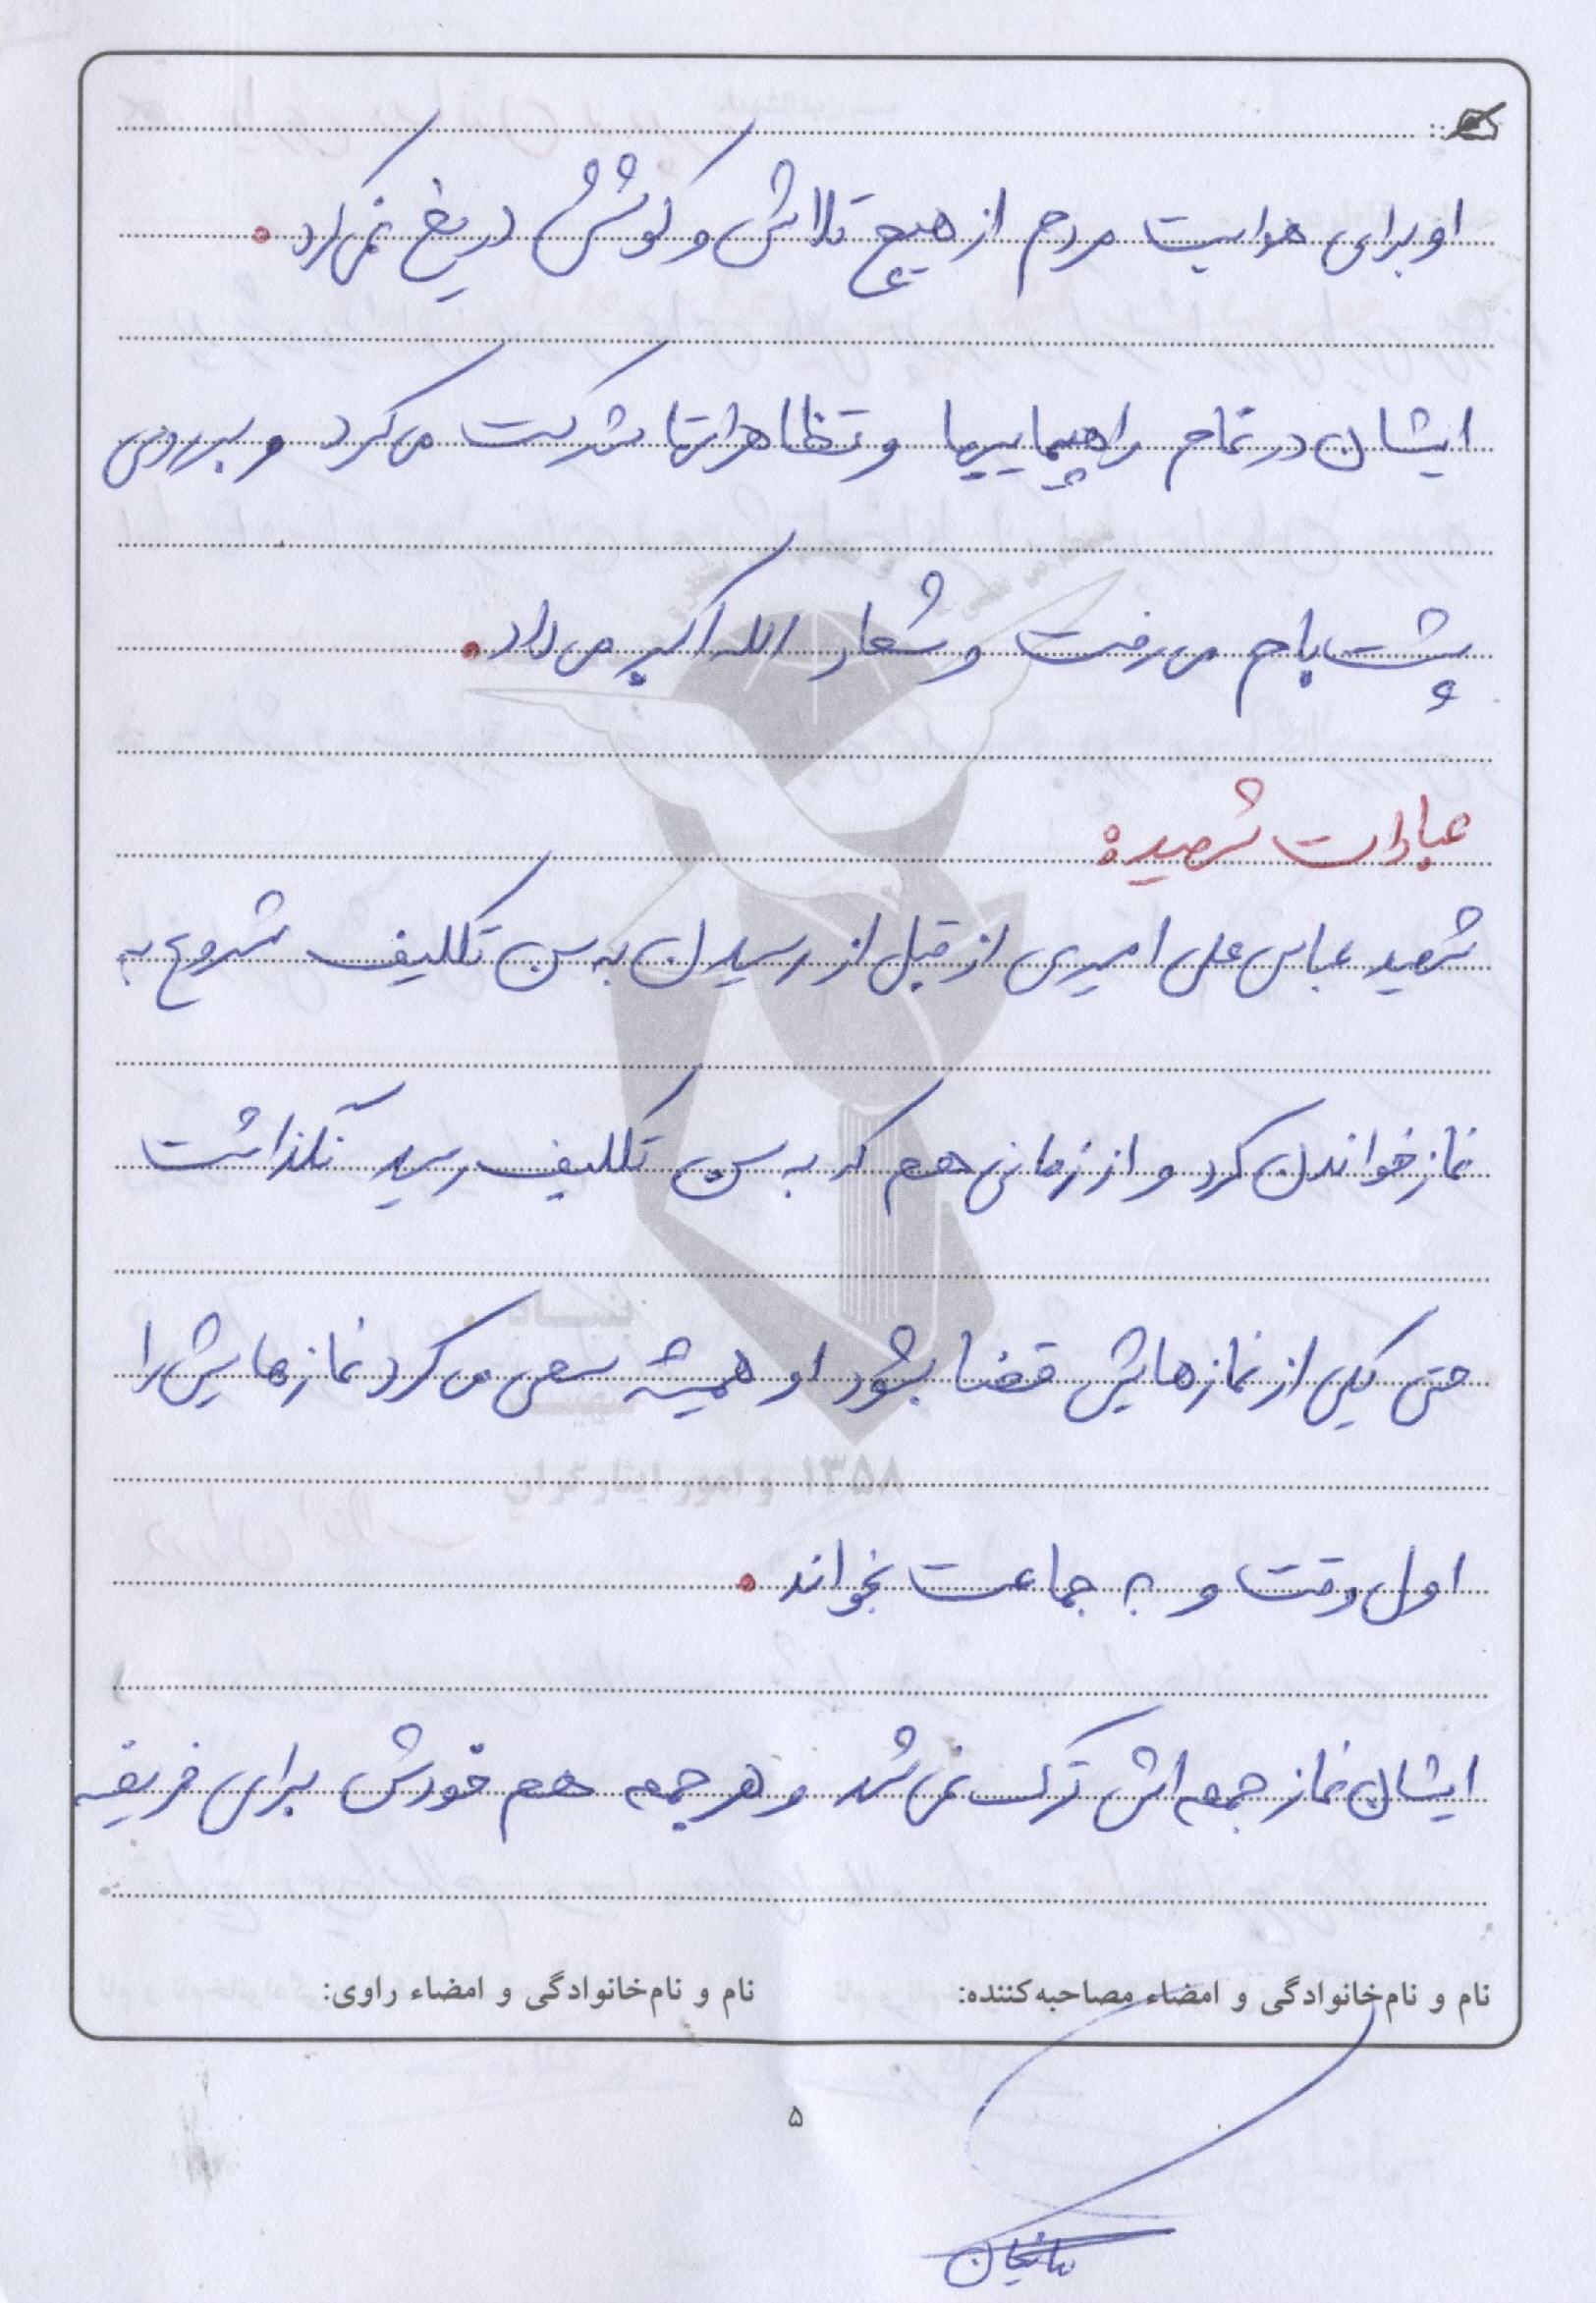 او برای هدایت مردم از هیچ تلاش و کوشش دریغ نمی‌کرد.
ایشان در تمام راهپیماییها و تظاهراتها شرکت می‌کرد و بر روی
پشت بام می‌رفت و شعار الله اکبر می‌داد.
عبادات شهید:
شهید عباس علی امیری از قبل از رسیدن به سن تکلیف شروع به
نماز خواندن کرد و از زمانی هم که به سن تکلیف رسید نگذاشت
حتی یکی از نمازهایش قضا بشود او همیشه سعی می‌کرد نمازهایش را
اول وقت و به جماعت بخواند.
ایشان نماز جمعه اش ترک نمی‌شد و هر جمعه هم خودش برای فریضه
بنیاد
شهید
و امور ایثارگران ۱۳۵۸
نام و نام‌خانوادگی و امضاء مصاحبه‌کننده:
نام و نام‌خانوادگی و امضاء راوی:
۵